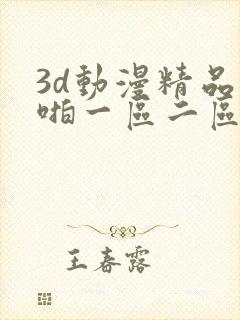 3d動漫精品
啪一區二區
王春露